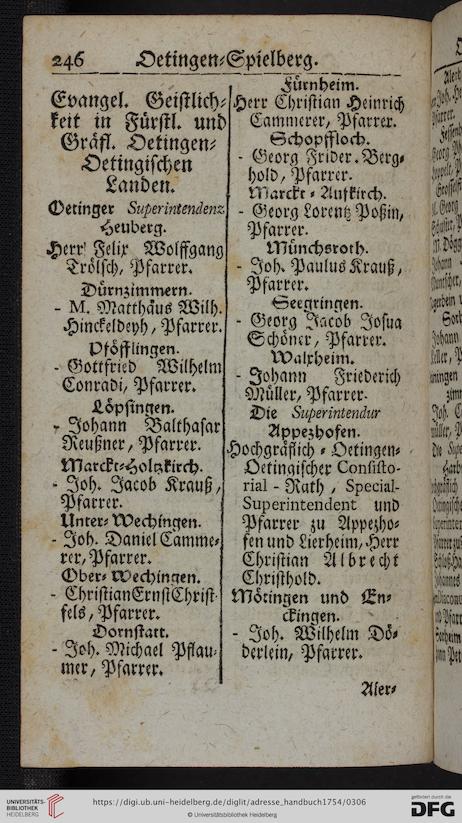 246 Oetingen-Spielberg.
Evangel. Geistlich-
keit in Fürstl. und
Gräfl. Oetingen-
Oetingischen
Landen.
Oetinger Superintendenz
Heuberg.
Herr Felix Wolffgang
Trölsch, Pfarrer.
Dürnzimmern.
- M. Matthäus Wilh.
Hinckeldeyh, Pfarrer.
Pföfflingen.
- Gottfried Wilhelm
Conradi, Pfarrer.
Löpsingen.
- Johann Balthasar
Reußner, Pfarrer.
Marckt-Holzkirch.
- Joh. Jacob Krauß,
Pfarrer.
Unter-Wechingen.
- Joh. Daniel Camme-
rer, Pfarrer.
Ober-Wechingen.
- Christian Ernst Christ-
fels, Pfarrer.
Dornstatt.
- Joh. Michael Pflau-
mer, Pfarrer.
Fürnheim.
Herr Christian Heinrich
Cammerer, Pfarrer.
Schopffloch.
- Georg Frider. Berg-
hold, Pfarrer.
Marckt-Aufkirch.
- Georg Lorentz Poßin,
Pfarrer.
Münchsroth.
- Joh. Paulus Krauß,
Pfarrer.
Seegringen.
- Georg Jacob Josua
Schöner, Pfarrer.
Walxheim.
- Johann Friederich
Müller, Pfarrer.
Die Superintendur
Appezhofen.
Hochgräflich-Oetingen-
Oetingischer Consisto-
rial-Rath, Special-
Superintendent und
Pfarrer zu Appezho-
fen und Lierheim, Herr
Christian Albrecht
Christhold.
Mötingen und En-
ckingen.
- Joh. Wilhelm Dö-
derlein, Pfarrer.
Aler-
UNIVERSITÄTS-
BIBLIOTHEK
HEIDELBERG
https://digi.ub.uni-heidelberg.de/diglit/adresse_handbuch1754/0306
© Universitätsbibliothek Heidelberg
gefördert durch die
DFG